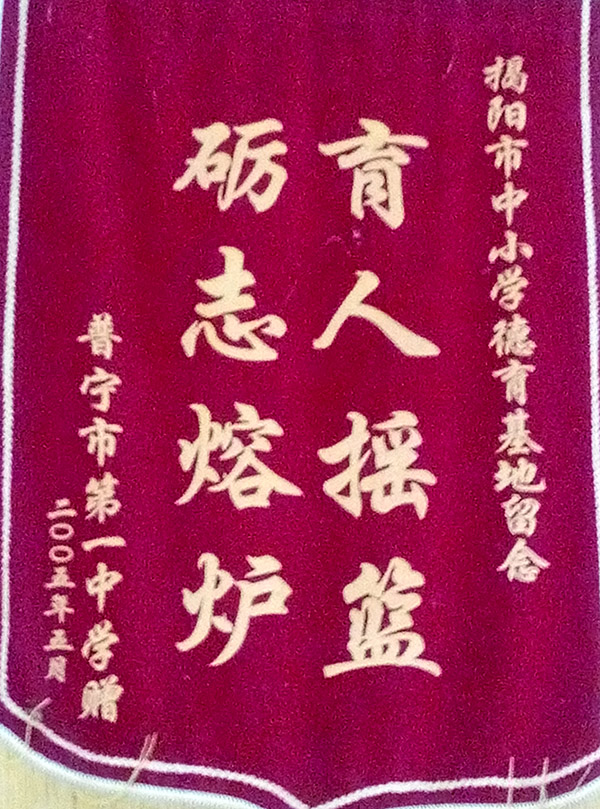 揭阳市中小学德育基地留念
育人摇蓝
砺志熔炉
普宁市第一中学赠
二〇〇五年五月